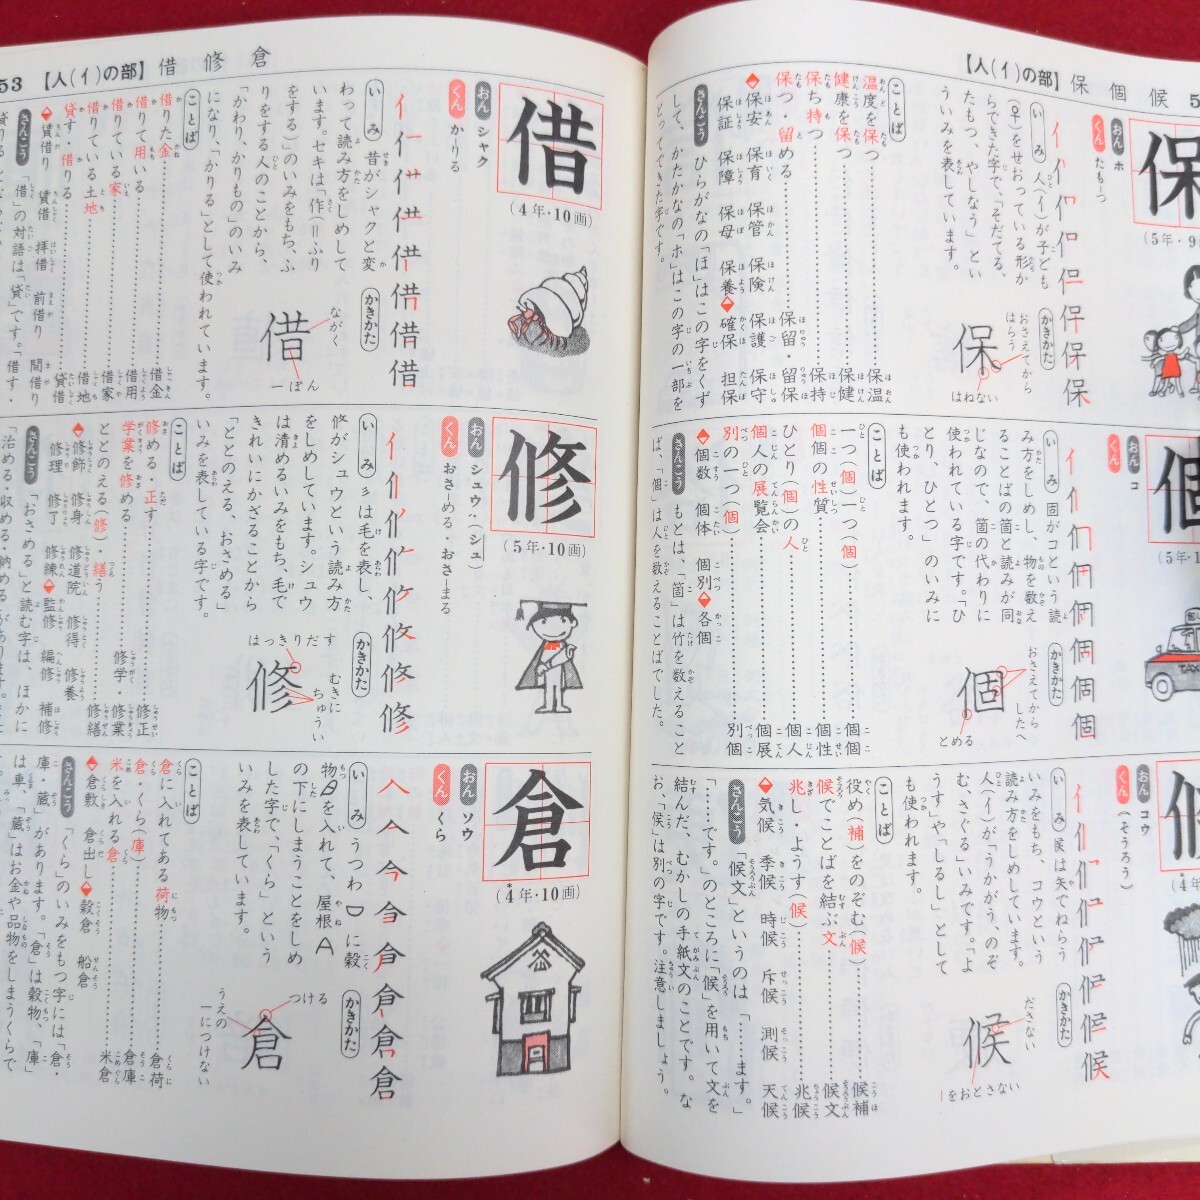 【人(亻)の部】 保 個 候 5
保
(5年・9
おん ホ
くん たもーつ
いみ 人(亻)が子ども
(𤔔)をせおっている形か
らできた字で、「そだてる、
たもつ、やしなう」とい
ういみを表しています。
かきかた
保
おさえてから
はらう
はねない
ことば
温度を保つ……保温
健康を保つ……保健
保ち持つ……保持
保つ・留める……保留・留保
◆保安 保育 保管 保険 保護 保守
保証 保障 保母 保養◆確保 担保
さんこう ひらがなの「ほ」はこの字をくず
して、かたかなの「ホ」はこの字の一部を
とってできた字です。
個
(5年・1
おん コ
くん
いみ 固がコという読
み方をしめし、物を数え
ることばの箇と読みが同
じなので、箇の代わりに
使われている字です。「ひ
とり、ひとつ」のいみに
も使われます。
かきかた
個
おさえてから
したへ
とめる
ことば
一つ(個)一つ(個)……個個
個個の性質……個性
ひとり(個)の人……個人
個人の展覧会……個展
別の一つ(個)……別個
◆個数 個体 個別◆各個
さんこう もとは、「箇」は竹を数えること
ば、「個」は人を数えることばでした。
候
(4年
おん コウ
くん (そうろう)
いみ 矦は矢でねらう
いみをもち、コウという
読み方をしめしています。
人(亻)が「うかがう、のぞ
む、さぐる」いみです。「よ
うす」や「しるし」として
も使われます。
かきかた
候
ださない
|をおとさない
ことば
役め(補)をのぞむ(候)……候補
候でことばを結ぶ文……候文
兆し・ようす(候)……兆候
◆気候 季候 時候 斥候 測候 天候
さんこう 「候文」というのは「……ます。」
「……です。」のところに「候」を用いて文を
結んだ、むかしの手紙文のことです。な
お、「侯」は別の字です。注意しましょう。
53 【人(亻)の部】 借 修 倉
借
(4年・10画)
おん シャク
くん かーりる
いみ 昔がシャクと変
わって読み方をしめして
います。セキは「作=ふり
をする)」のいみをもち、ふ
りをする人のことから、
「かわり、かりもの」のいみ
になり、「かりる」として使われています。
かきかた
借
ながく
一ぽん
ことば
借りた金……借金
借りて用いる……借用
借りている家……借家
借りている土地……借地
貸す・借りる……貸借
◆賃借り 賃借 拝借 前借り 間借り
さんこう 「借」の対語は「貸」です。「借す・
修
(5年・10画)
おん シュウ・(シュ)
くん おさーめる・おさーまる
いみ 彡は毛を表し、
修がシュウという読み方
をしめしています。シュウ
は清めるいみをもち、毛で
きれいにかざることから
「ととのえる、おさめる」
いみを表している字です。
かきかた
修
はっきりだす
むきに
ちゅうい
ことば
修める・正す……修正
学業を修める……修学・修業
ととのえる(修)・繕う……修繕
◆修師 修身 修道院 修得 修養
修理 修了 修練◆監修 編修 補修
さんこう 「おさめる」と読む字は、ほかに
「治める・収める・納める」があります。
倉
(4年・10画)
おん ソウ
くん くら
いみ うつわに穀
物を入れて、屋根
の下にしまうことをしめ
した字で、「くら」という
いみを表しています。
かきかた
倉
つける
うえの
一につけない
ことば
倉に入れてある荷物……倉荷
倉・くら(庫)……倉庫
米を入れる倉……米倉
◆倉敷 倉出し◆穀倉 船倉
さんこう 「くら」のいみをもつ字には「倉・
庫・蔵」があります。「倉」は穀物、「庫」
は車、「蔵」はお金や品物をしまうくらで